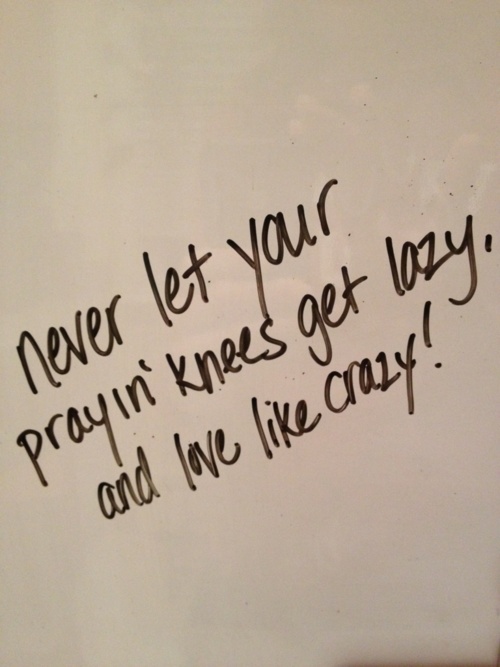 never let your
prayin' knees get lazy.
and love like crazy!